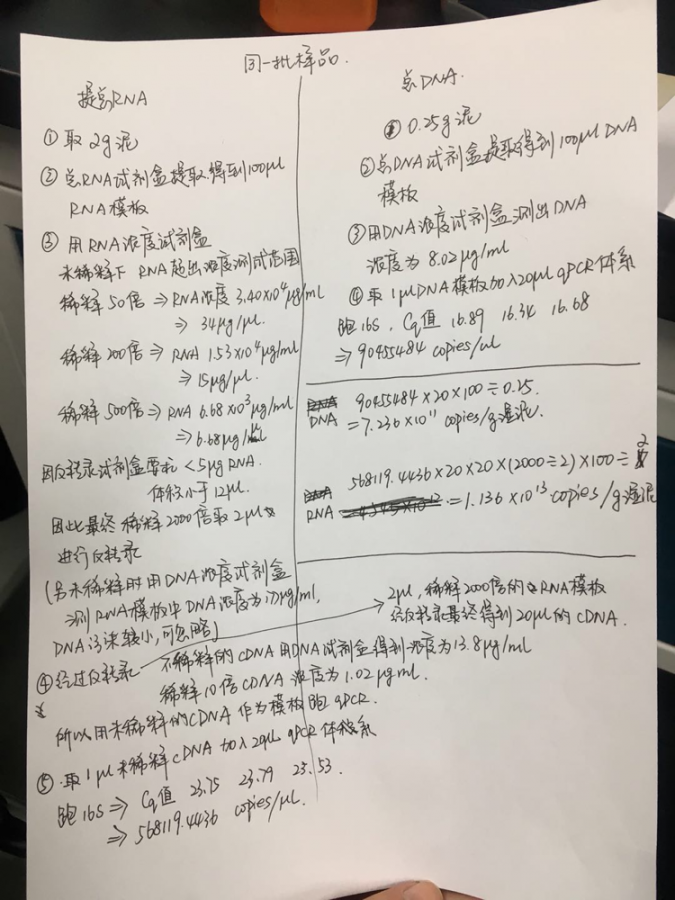 同一批样品.
提总RNA
① 取2g泥
② 总RNA试剂盒提取得到100μl
RNA模板
③ 用RNA浓度试剂盒
未稀释下 RNA超出浓度测试范围
稀释50倍 ⇒ RNA浓度 3.40×10⁴μg/ml
⇒ 34μg/μl.
稀释200倍 ⇒ RNA 1.53×10⁴μg/ml
⇒ 15μg/μl.
稀释500倍 ⇒ RNA 6.68×10³μg/ml
⇒ 6.68μg/μl
因反转录试剂盒要求 <5μg RNA.
体积小于12μl.
因此最终稀释2000倍取2μl
进行反转录
(另未稀释时用DNA浓度试剂盒
测RNA模板中DNA浓度为17μg/ml,
DNA污染较小,可忽略)
④ 经过反转录
2μl,稀释2000倍的RNA模板
经反转录最终得到20μl的cDNA.
不稀释的cDNA用DNA试剂盒得到浓度为13.8μg/ml
稀释10倍CDNA浓度为1.02μg/ml.
所以用未稀释的CDNA作为模板跑qPCR.
⑤ 取1μl未稀释cDNA加入20μL qPCR体系
跑16S ⇒ Cq值 23.75 23.79 23.53.
⇒ 568119.4436 copies/μL.
总DNA.
① 0.25g泥
② 总DNA试剂盒提取得到100μl DNA
模板
③ 用DNA浓度试剂盒测出DNA
浓度为8.02μg/ml
④ 取1μlDNA模板加入20μl qPCR体系
跑16S, Cq值 16.89 16.34 16.68
⇒ 90455484 copies/ul
DNA 90455484×20×100÷0.25.
=7.236×10¹¹ copies/g湿泥.
568119.4436×20×20×(2000÷2)×100÷2
RNA =1.136×10¹³copies/g湿泥